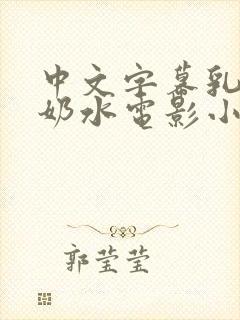 中文字幕乳
奶水电影小
郭莹莹